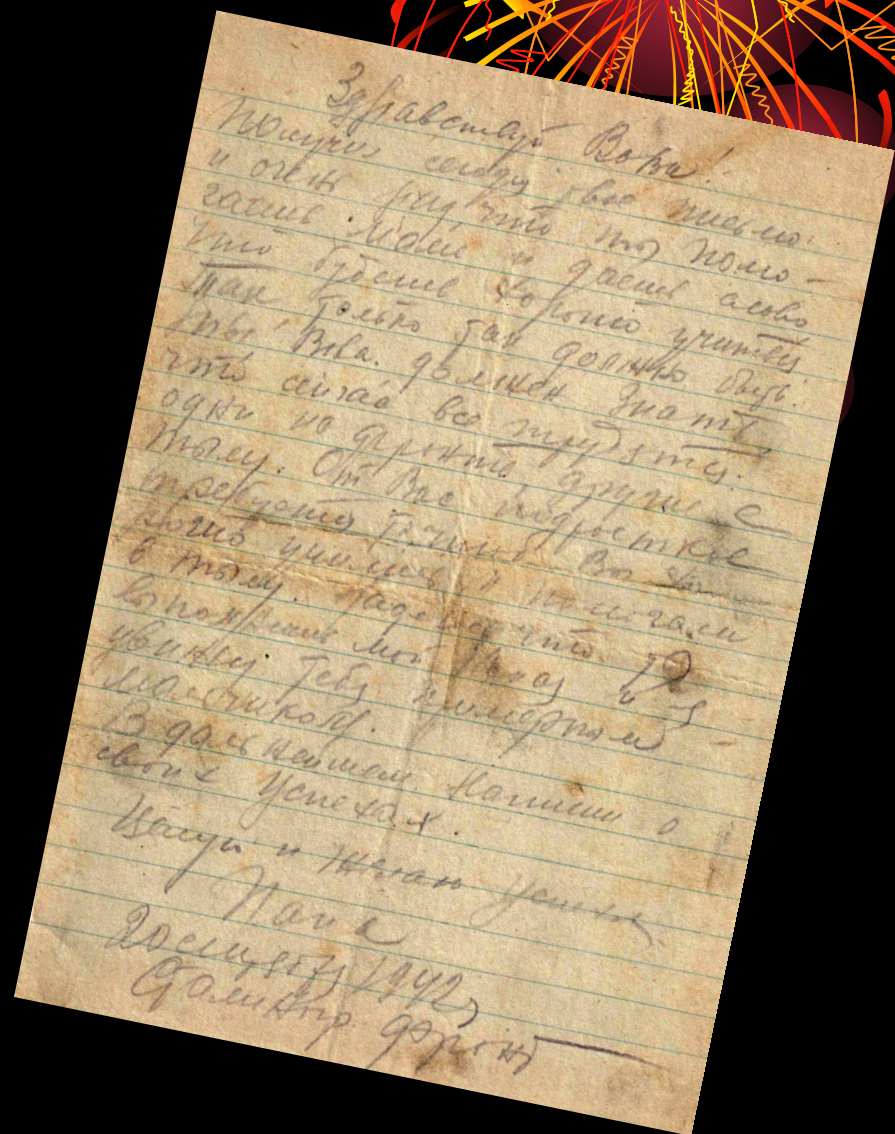 Здравствуй Вова!
Получил сегодня твое письмо.
и очень рад что ты помо-
гаешь маме и даешь слово
что будешь хорошо учиться
Так только так должно быть.
Вова. должен знать
что сейчас все трудятся.
одни на фронте, другие в
тылу. От Вас подростков
требуется Вы
учились и помогали
в тылу. что
выполнишь мой наказ и я
увижу тебя примерным
мальчиком.
В дальнейшем. Напиши о
своих успехах.
Целую и желаю успеха
Папа
1942
Сталингр. фронт